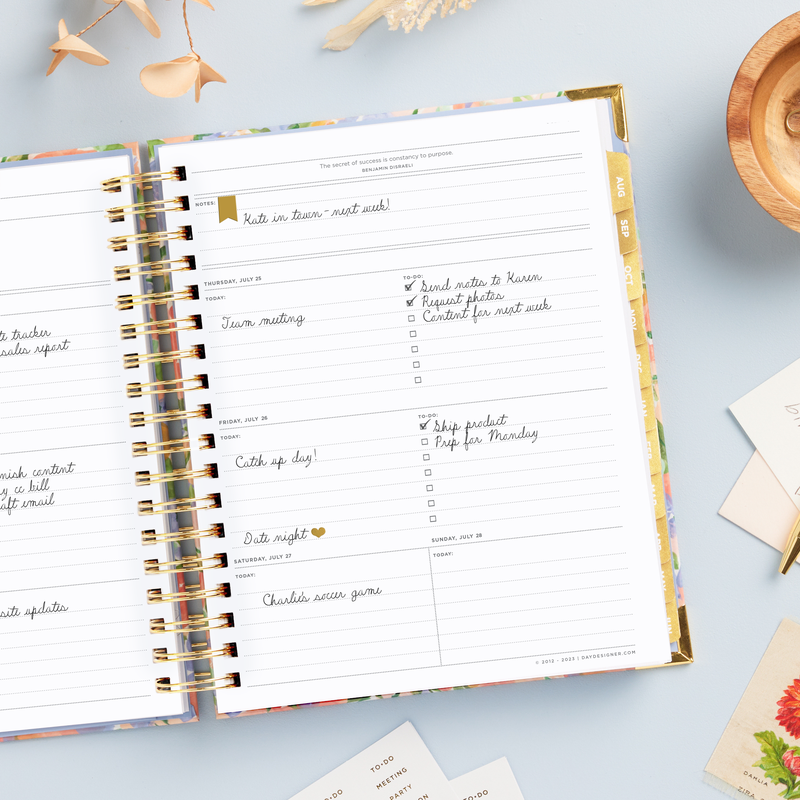 te tracker
sales report
nish content
y cc bill
aft email
site updates
The secret of success is constancy to purpose.
BENJAMIN DISRAELI
NOTES:
Kate in town - next week!
THURSDAY, JULY 25
TODAY:
Team meeting
TO-DO:
Send notes to Karen
Request photos
Content for next week
FRIDAY, JULY 26
TODAY:
Catch up day!
Date night
TO-DO:
Ship product
Prep for Monday
SATURDAY, JULY 27
TODAY:
Charlie's soccer game
SUNDAY, JULY 28
TODAY:
© 2012 - 2023 | DAYDESIGNER.COM
AUG
SEP
OCT
NOV
TO•DO
MEETING
PARTY
TO•DO
DAHLIA